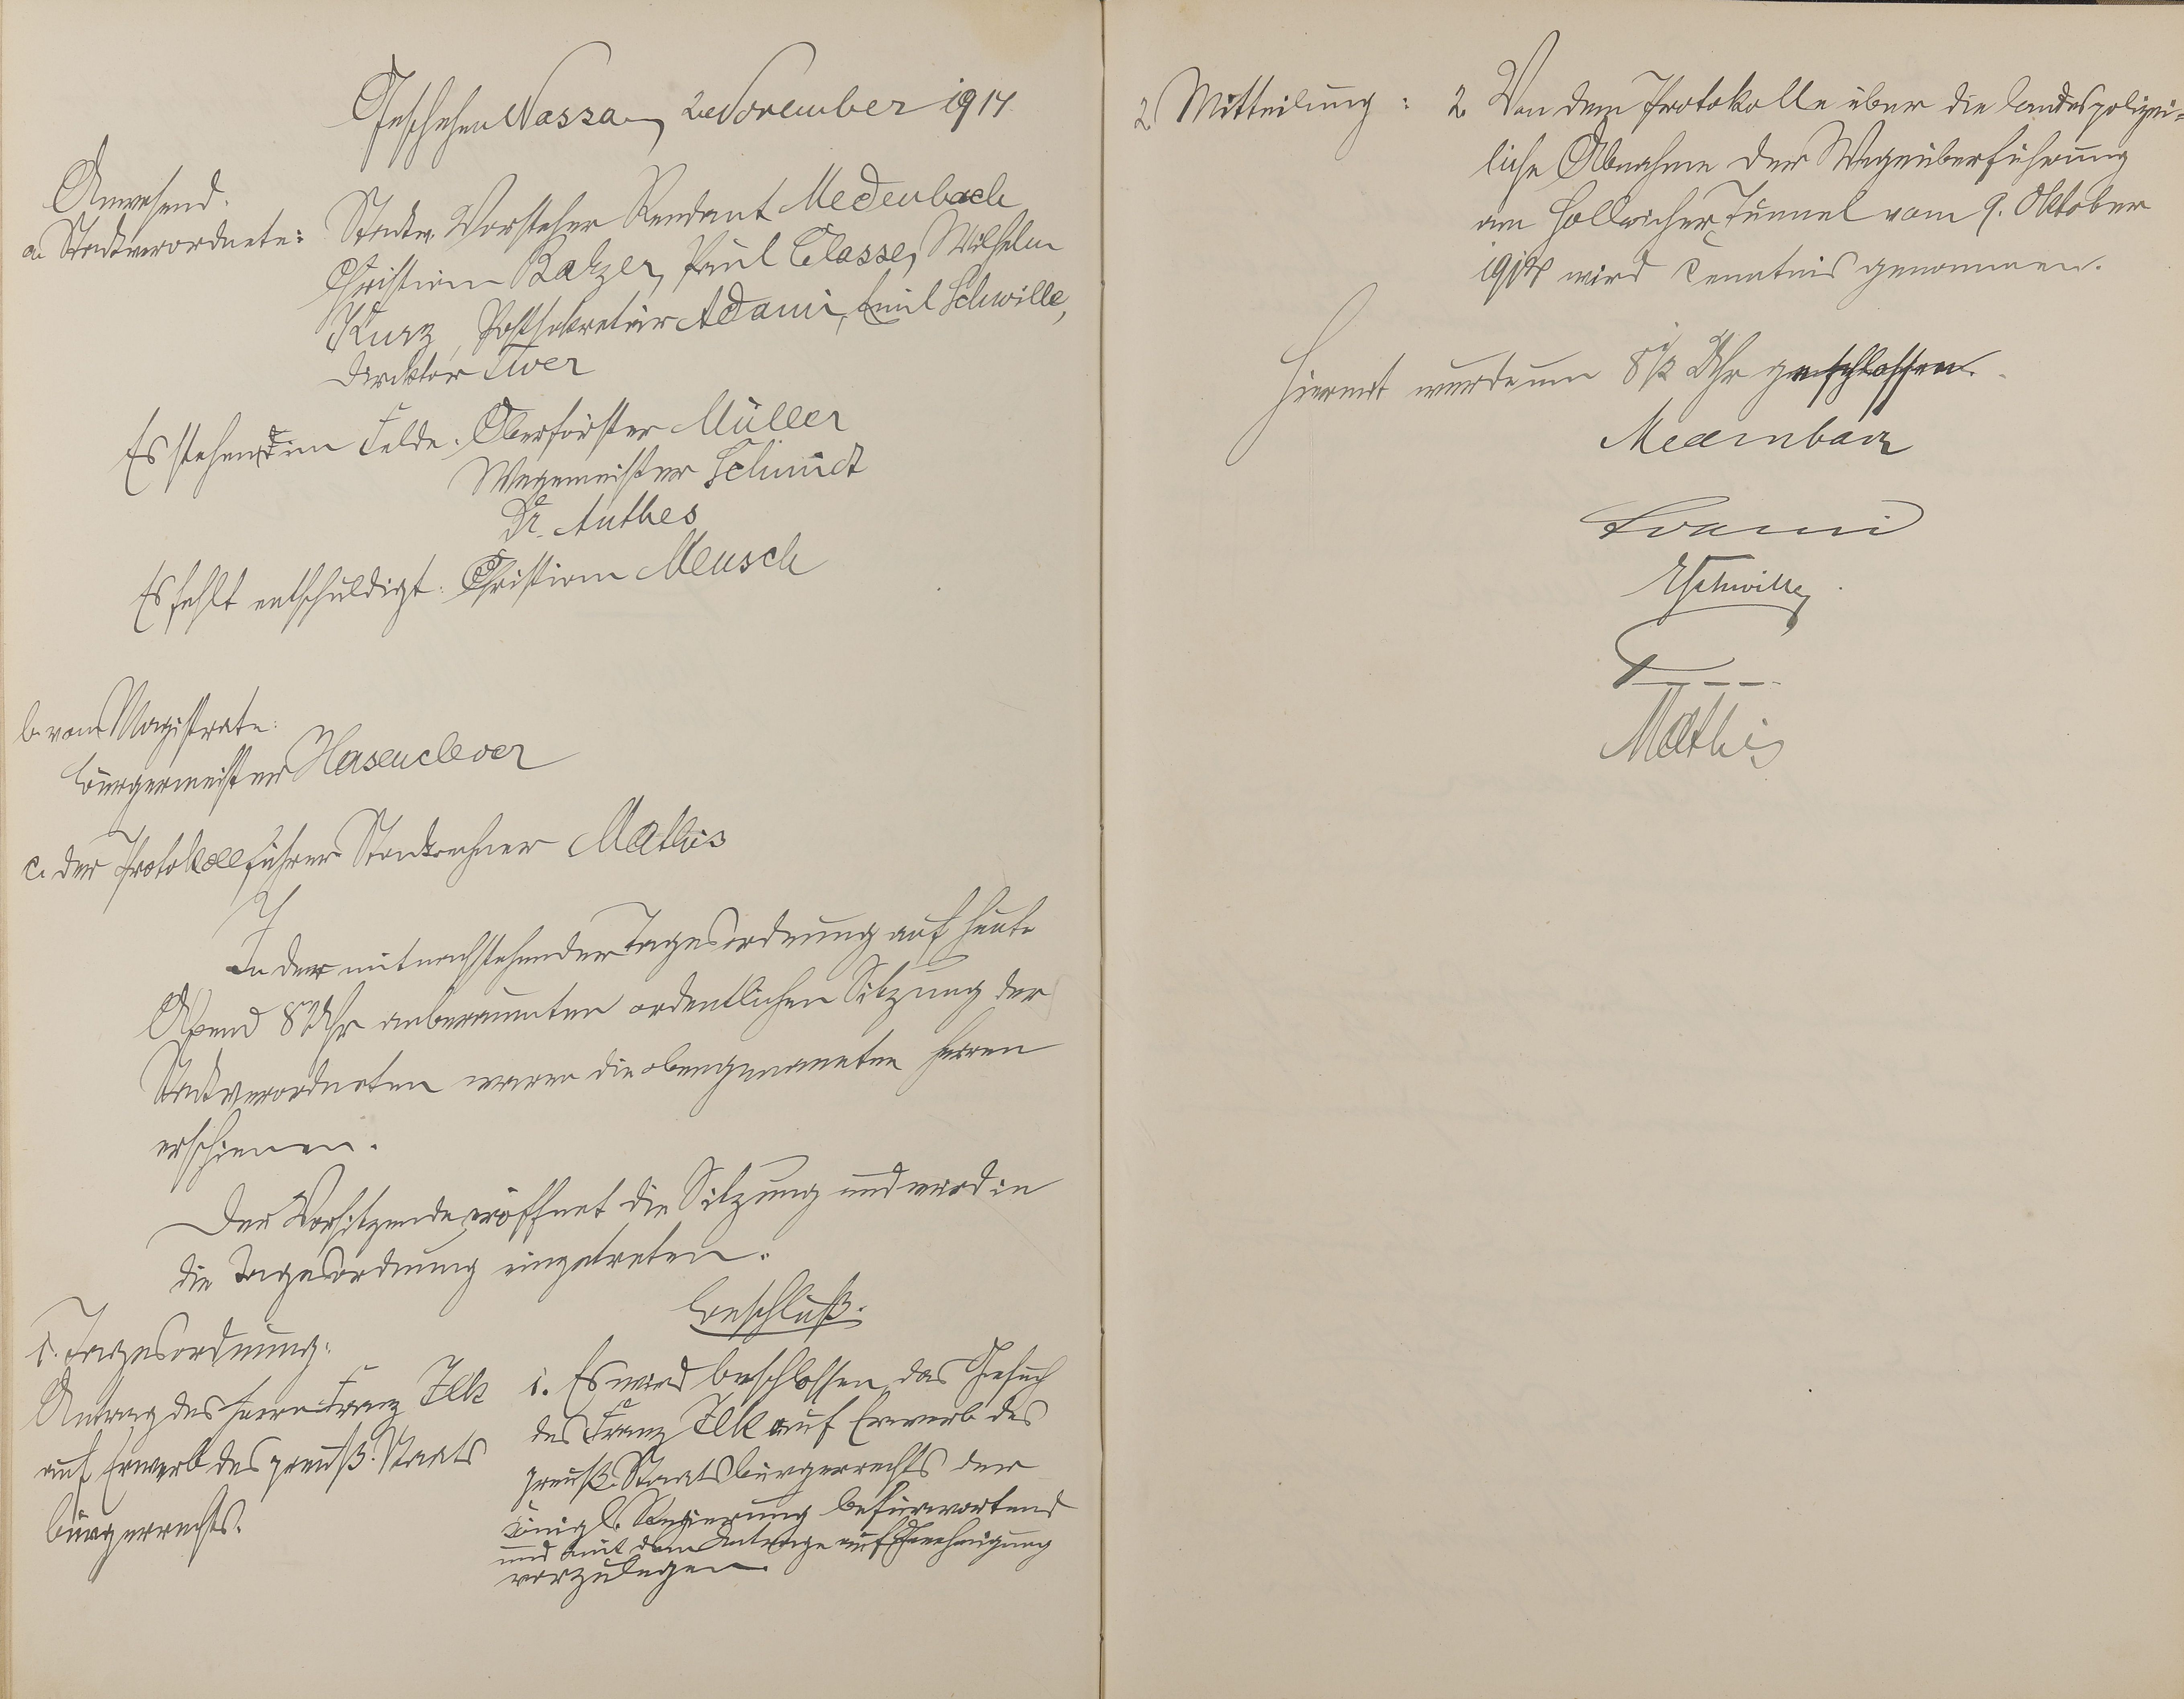 Geschehen Nassau, 2. November 1914
Anwesend.
a. Stadtverordnete: Stadtv. Vorsteher Rendant Medenbach
Christian Balzer, Paul Classe, Wilhelm
Kurz, Postsekretär Adami, Emil Schwille,
Direktor
Es stehen im Felde: Oberförster Müller
Wegemeister Schmidt
Dr. Anthes
Es fehlt entschuldigt: Christian Meusch
b. vom Magistrate:
Bürgermeister Hasenclever
c. der Protokollführer Stadtrechner Mathis
In der mit nachstehender Tagesordnung auf heute
Abend 8 Uhr anberaumten ordentlichen Sitzung der
Stadtverordneten waren die obengenannten Herren
erschienen.
Der Vorsitzende eröffnet die Sitzung und wird in
die Tagesordnung eingetreten.
Beschluß.
1. Tagesordnung:
Antrag des Herrn Franz Ilk
auf Erwerb des preuß. Staats
bürgerrechts.
1. Es wird beschlossen das Gesuch
des Franz Ilk auf Erwerb des
preuß. Staatsbürgerrechts der
Königl. Regierung befürwortend
und mit dem Antrage auf Genehmigung
vorzulegen.
2. Mitteilung: 2. Von dem Protokolle über die landespolizei=
liche Abnahme der Wegeüberführung
am Hollricher Tunnel vom 9. Oktober
1914 wird Kenntnis genommen.
Hiermit wurde um 8½ Uhr geschlossen.
Medenbach
Adami
ESchwille
Mathis